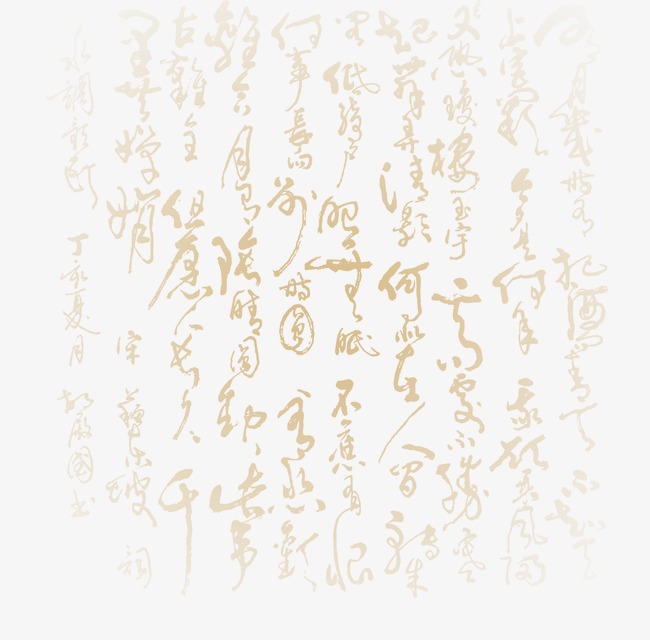 明月幾時有把酒問青天不知天
上宮闕今夕是何年我欲乘風歸
又恐瓊樓玉宇高處不勝寒
起舞弄清影何似在人間轉朱
閣低綺戶照無眠不應有恨
何事長向別時圓人有悲歡
離合月有陰晴圓缺此事
古難全但願人長久千
里共嬋娟 宋 蘇東坡詞
水調歌頭 丁亥夏月 國書